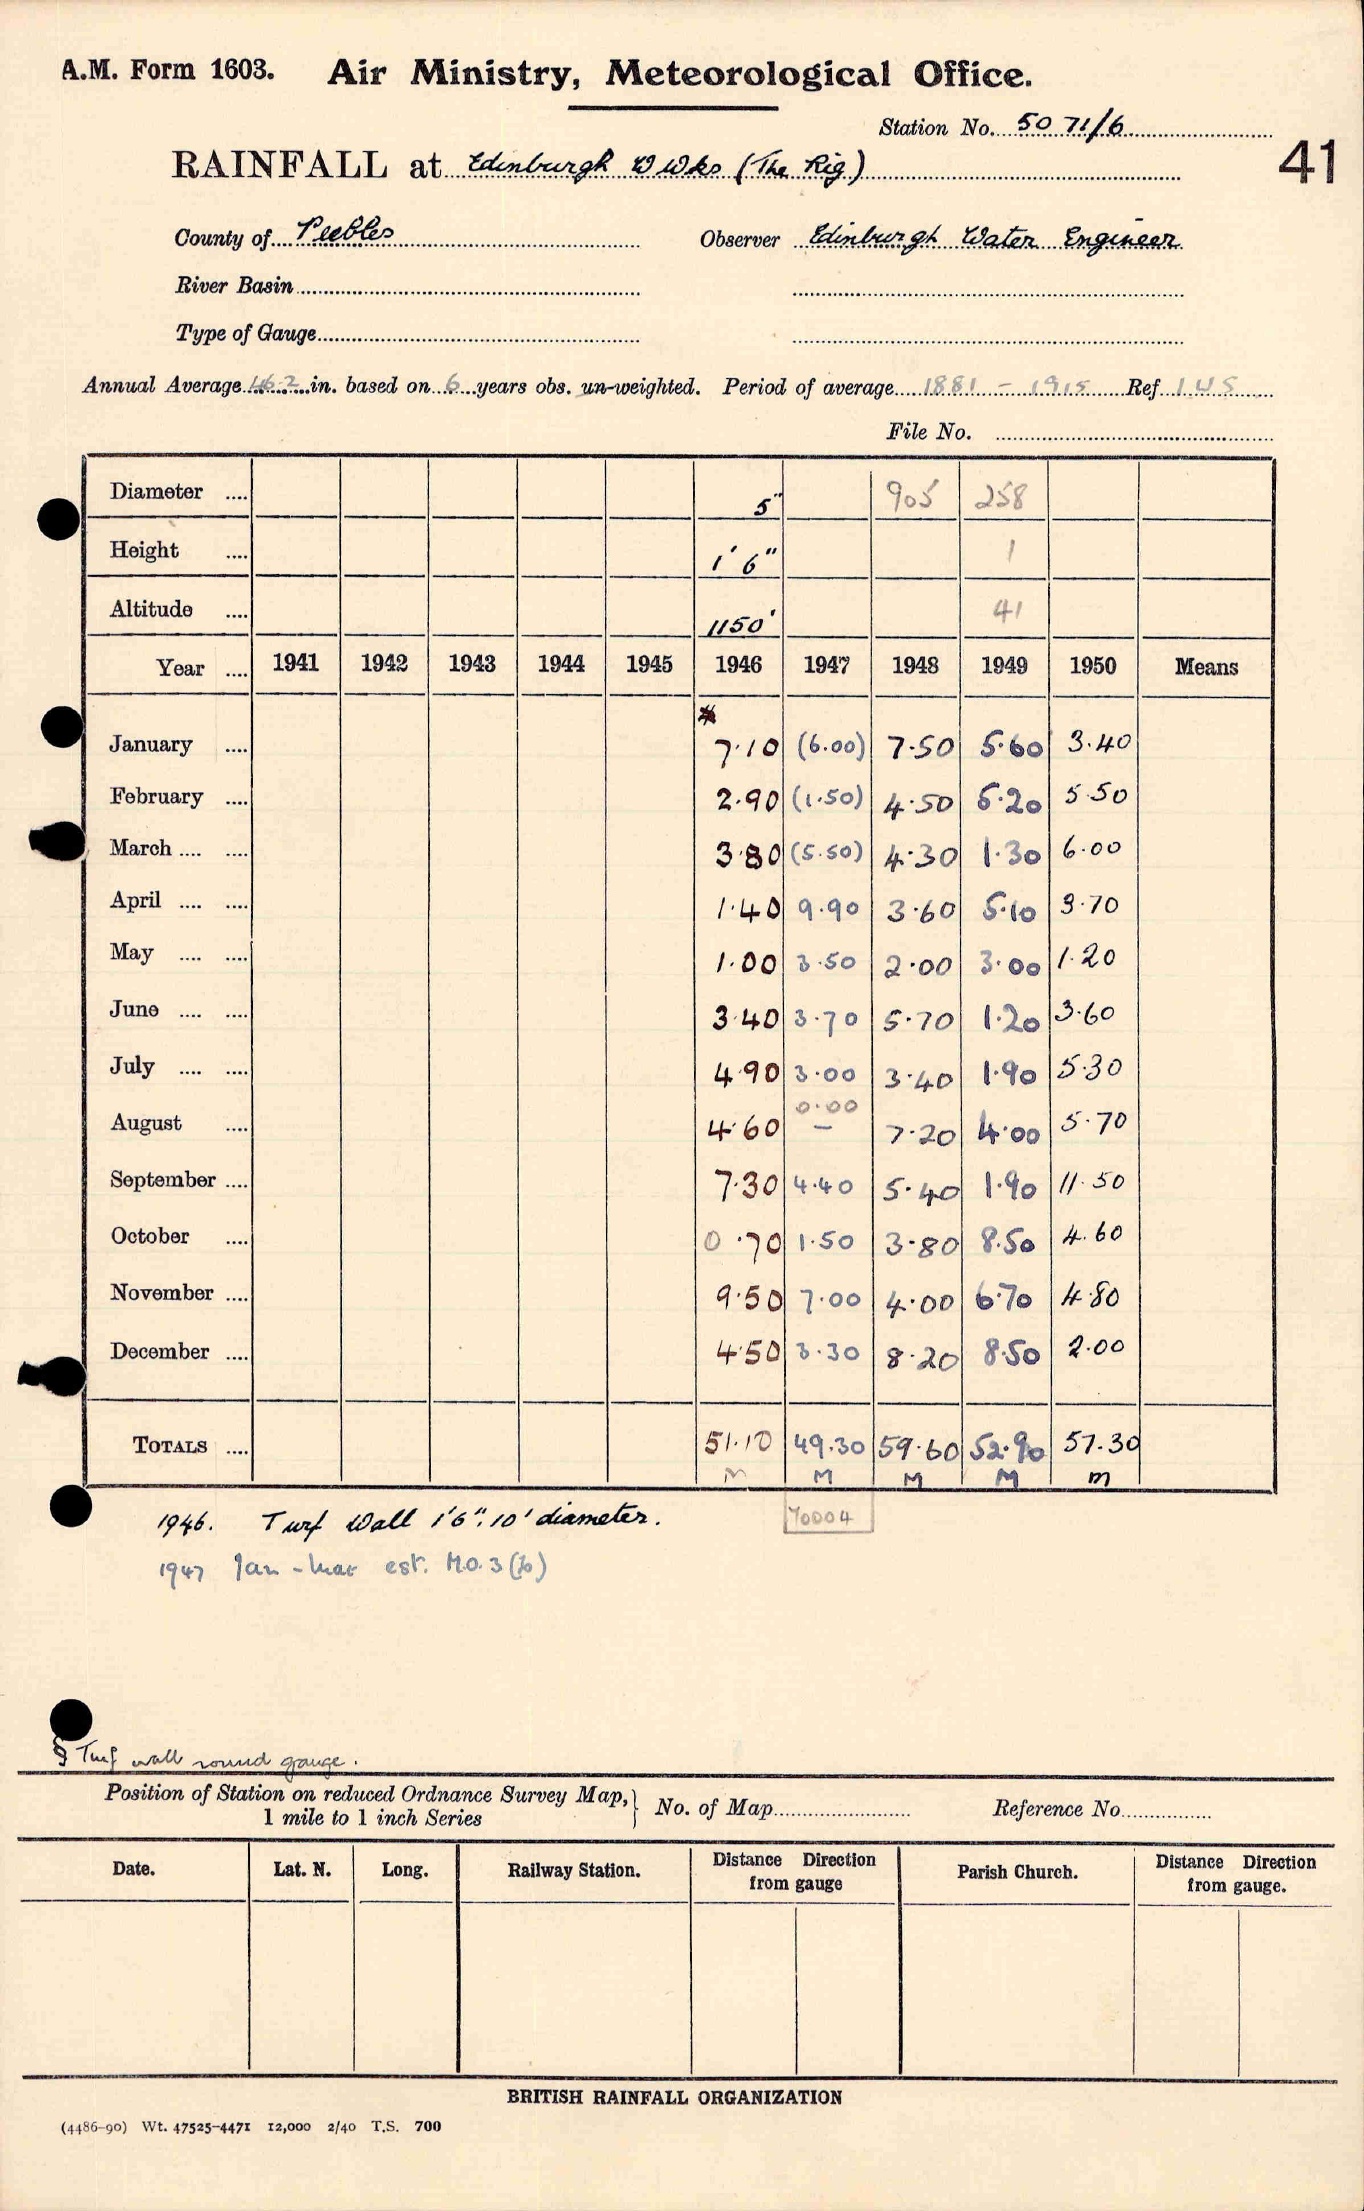 A.M. Form 1603. Air Ministry, Meteorological Office.
Station No. 5071/6
41
RAINFALL at Edinburgh W Wks (The Rig)
County of Peebles Observer Edinburgh Water Engineer
River Basin
Type of Gauge
Annual Average 46.2 in. based on 6 years obs. un-weighted. Period of average 1881 - 1915 Ref
File No.
Diameter .... 5" 905 258
Height .... 1' 6" 1
Altitude .... 1150' 41
Year .... 1941 1942 1943 1944 1945 1946 1947 1948 1949 1950 Means
January .... 7.10 (6.00) 7.50 5.60 3.40
February .... 2.90 (1.50) 4.50 5.20 5.50
March .... .... 3.80 (5.50) 4.30 1.30 6.00
April .... .... 1.40 9.90 3.60 5.10 3.70
May .... .... 1.00 3.50 2.00 3.00 1.20
June .... .... 3.40 3.70 5.70 1.20 3.60
July .... .... 4.90 3.00 3.40 1.90 5.30
0.00
August .... 4.60 – 7.20 4.00 5.70
September .... 7.30 4.40 5.40 1.90 11.50
October .... 0.70 1.50 3.80 8.50 4.60
November .... 9.50 7.00 4.00 6.70 4.80
December .... 4.50 3.30 8.20 8.50 2.00
TOTALS .... 51.10 49.30 59.60 52.90 57.30
M M M M m
1946. Turf Wall 1'6". 10' diameter. 70004
1947 Jan - Mar est. M.O.3(b)
§ Turf wall round gauge.
Position of Station on reduced Ordnance Survey Map,} No. of Map Reference No.
1 mile to 1 inch Series
Date. Lat. N. Long. Railway Station. Distance Direction from gauge Parish Church. Distance Direction from gauge.
BRITISH RAINFALL ORGANIZATION
(4486-90) Wt. 47525-4471 12,000 2/40 T.S. 700